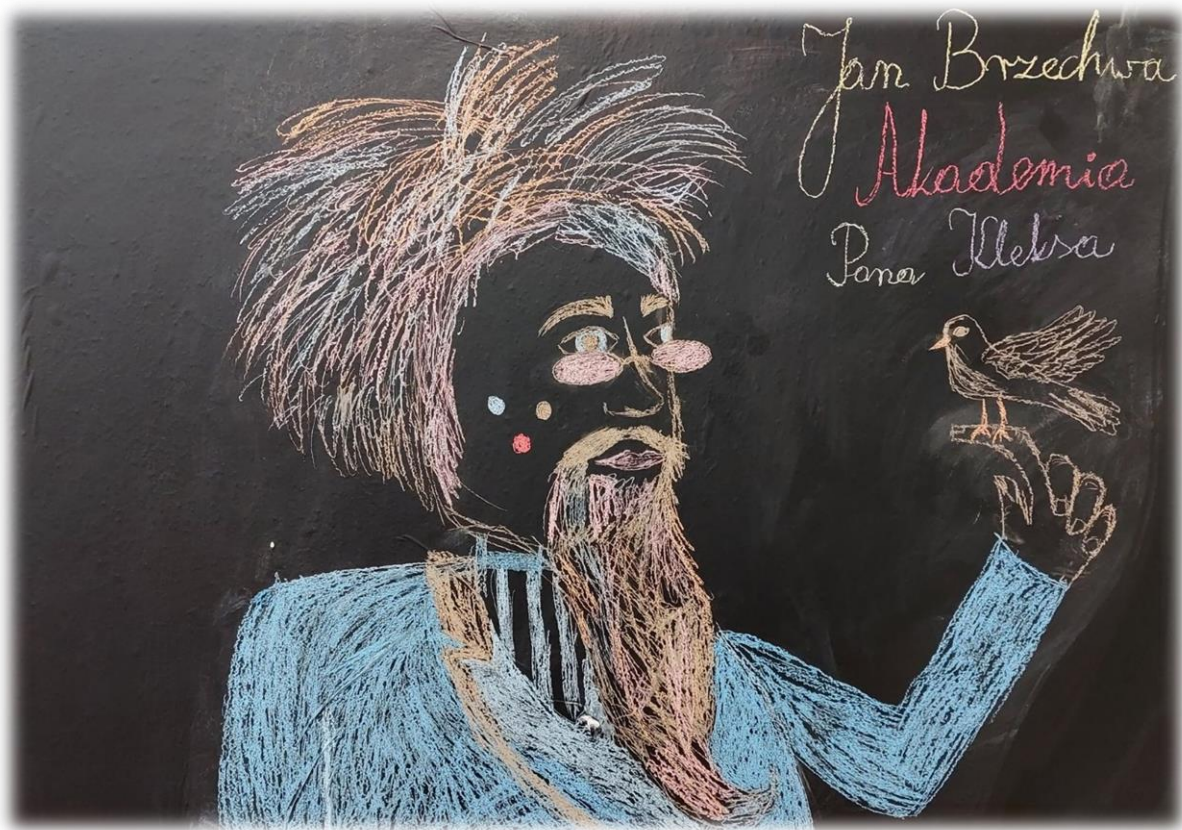 Jan Brzechwa
Akademia
Pana Kleksa